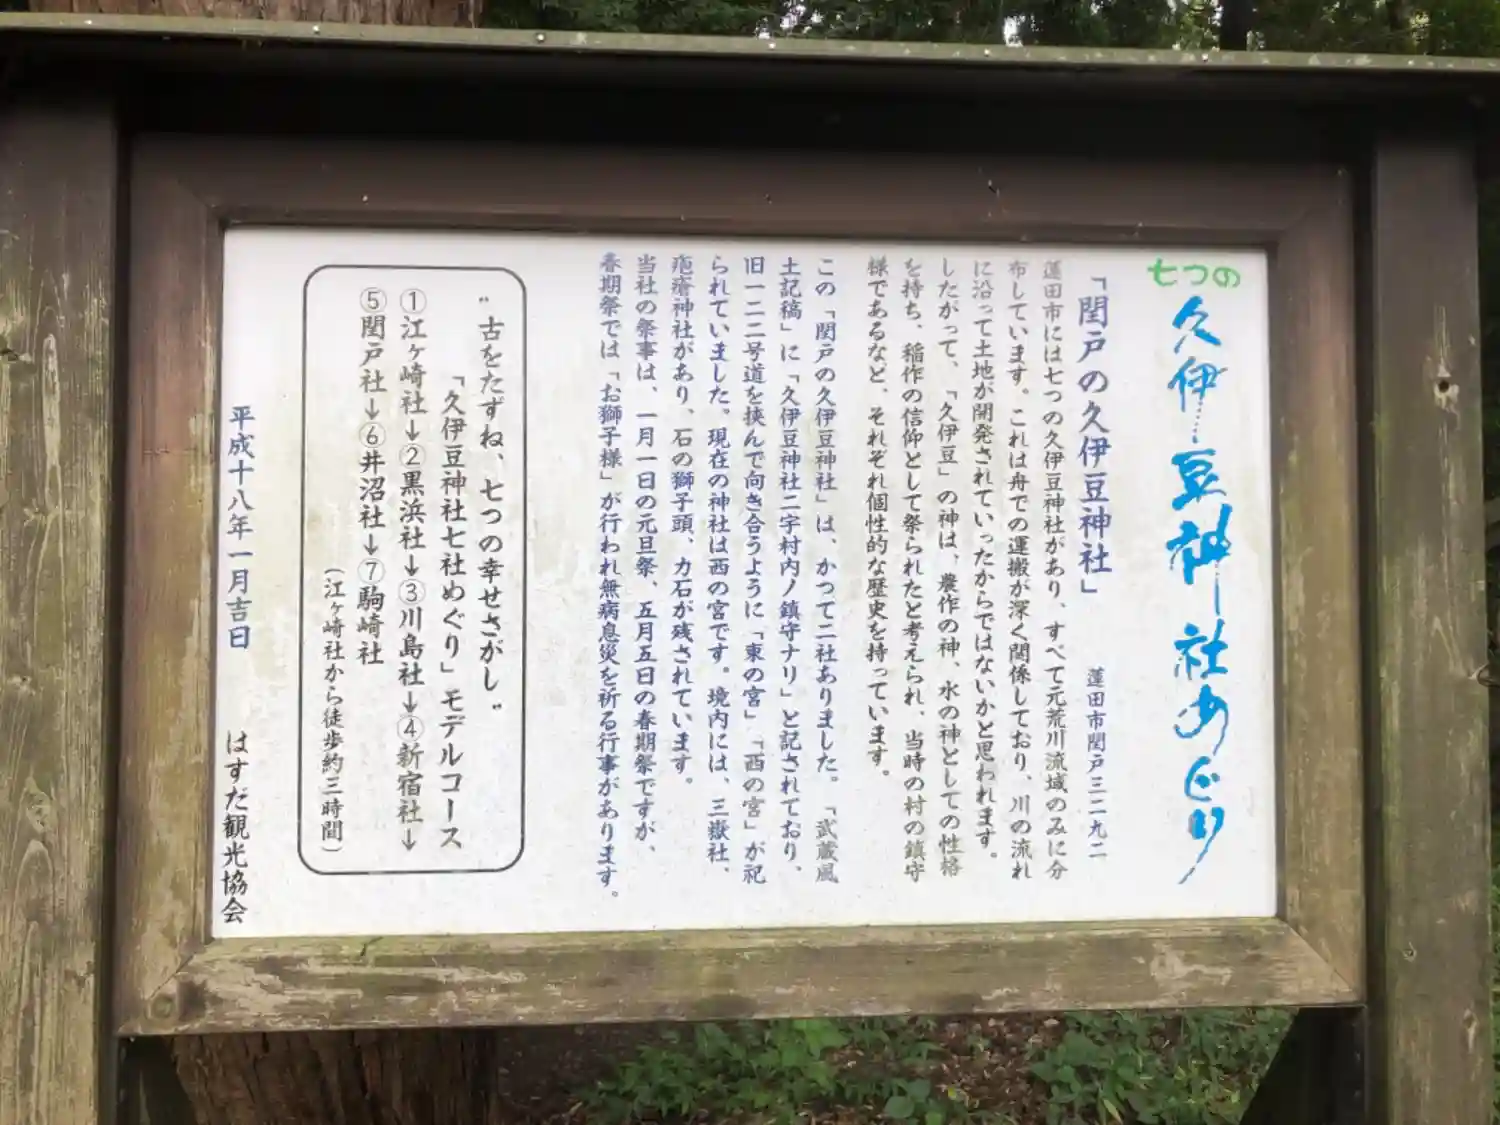 七つの
久伊豆神社めぐり
「閏戸の久伊豆神社」
蓮田市閏戸三二九二
蓮田市には七つの久伊豆神社があり、すべて元荒川流域のみに分
布しています。これは舟での運搬が深く関係しており、川の流れ
に沿って土地が開発されていったからではないかと思われます。
したがって、「久伊豆」の神は、農作の神、水の神としての性格
を持ち、稲作の信仰として祭られたと考えられ、当時の村の鎮守
様であるなど、それぞれ個性的な歴史を持っています。
この「閏戸の久伊豆神社」は、かつて二社ありました。「武蔵風
土記稿」に「久伊豆神社二宇村内ノ鎮守ナリ」と記されており、
旧一二二号道を挟んで向き合うように「東の宮」「西の宮」が祀
られていました。現在の神社は西の宮です。境内には、三嶽社、
疱瘡神社があり、石の獅子頭、力石が残されています。
当社の祭事は、一月一日の元旦祭、五月五日の春期祭ですが、
春期祭では「お獅子様」が行われ無病息災を祈る行事があります。
〝古をたずね、七つの幸せさがし〟
「久伊豆神社七社めぐり」モデルコース
①江ヶ崎社→②黒浜社→③川島社→④新宿社→
⑤閏戸社→⑥井沼社→⑦駒崎社
（江ヶ崎社から徒歩約三時間）
平成十八年一月吉日
はすだ観光協会